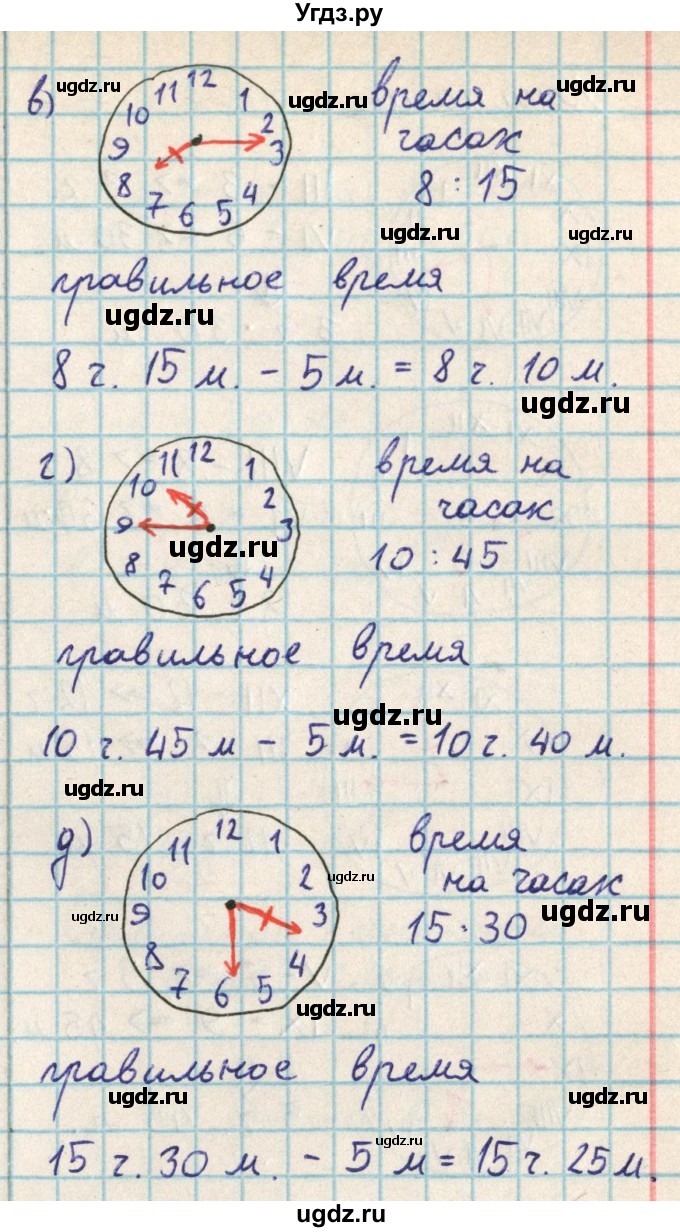 Угдз.ру
в)
12
11
1
10
2
9
3
8
4
7
6
5
время на
часах
8 : 15
ugdz.ru
ugdz.ru
ugdz.ru
ugdz.ru
ugdz.ru
правильное время
ugdz.ru
8 ч. 15 м. - 5 м. = 8 ч. 10 м.
ugdz.ru
г)
12
11
1
10
2
9
3
8
4
7
6
5
время на
часах
10 : 45
ugdz.ru
правильное время
ugdz.ru
10 ч. 45 м - 5 м. = 10 ч. 40 м.
ugdz.ru
д)
12
11
1
10
2
9
3
8
4
7
6
5
время
на часах
15 : 30
ugdz.ru
ugdz.ru
ugdz.ru
ugdz.ru
правильное время
ugdz.ru
ugdz.ru
ugdz.ru
15 ч. 30 м. - 5 м = 15 ч. 25 м.
ugdz.ru